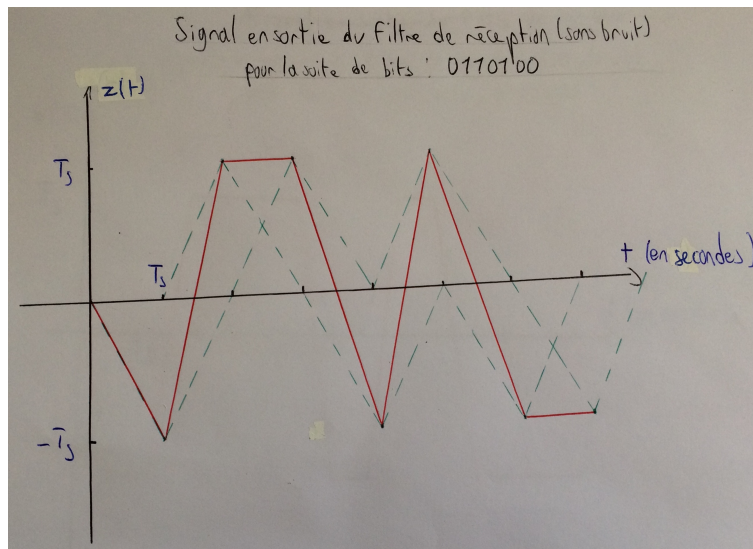 Signal en sortie du filtre de réception (sans bruit)
pour la suite de bits : 0110100
z(t)
Ts
Ts
t (en secondes)
-Ts